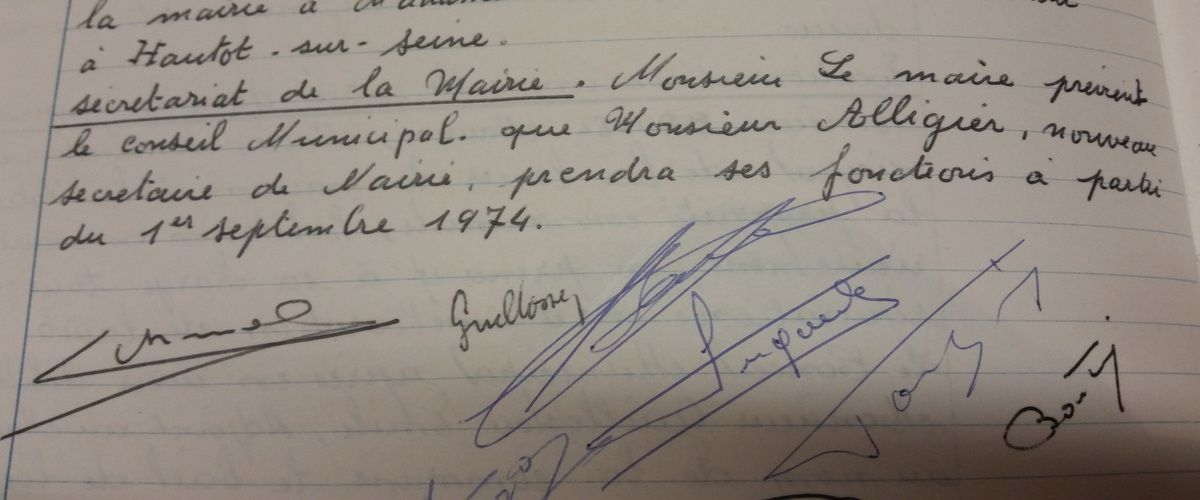 la mairie à
à Hautot-sur-Seine.
secrétariat de la Mairie. Monsieur Le maire prévient
le conseil Municipal. que Monsieur Alligier, nouveau
secretaire de Mairie, prendra ses fonctions à partir
du 1er septembre 1974.